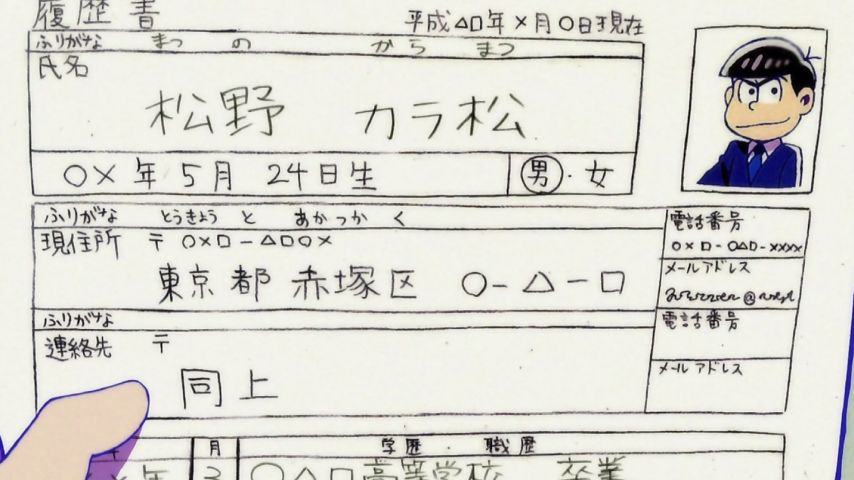 履歴書
平成△□年×月○日現在
ふりがな まつ の から まつ
氏名
松野 カラ松
○×年5月24日生 男・女
ふりがな とうきょう と あかつか く
現住所 〒○×□-△□○×
東京都赤塚区 ○-△-□
電話番号
○×□-○△□-××××
メールアドレス
ふりがな
連絡先 〒
同上
電話番号
メールアドレス
月 学歴・職歴
年 3 ○△□高等学校 卒業